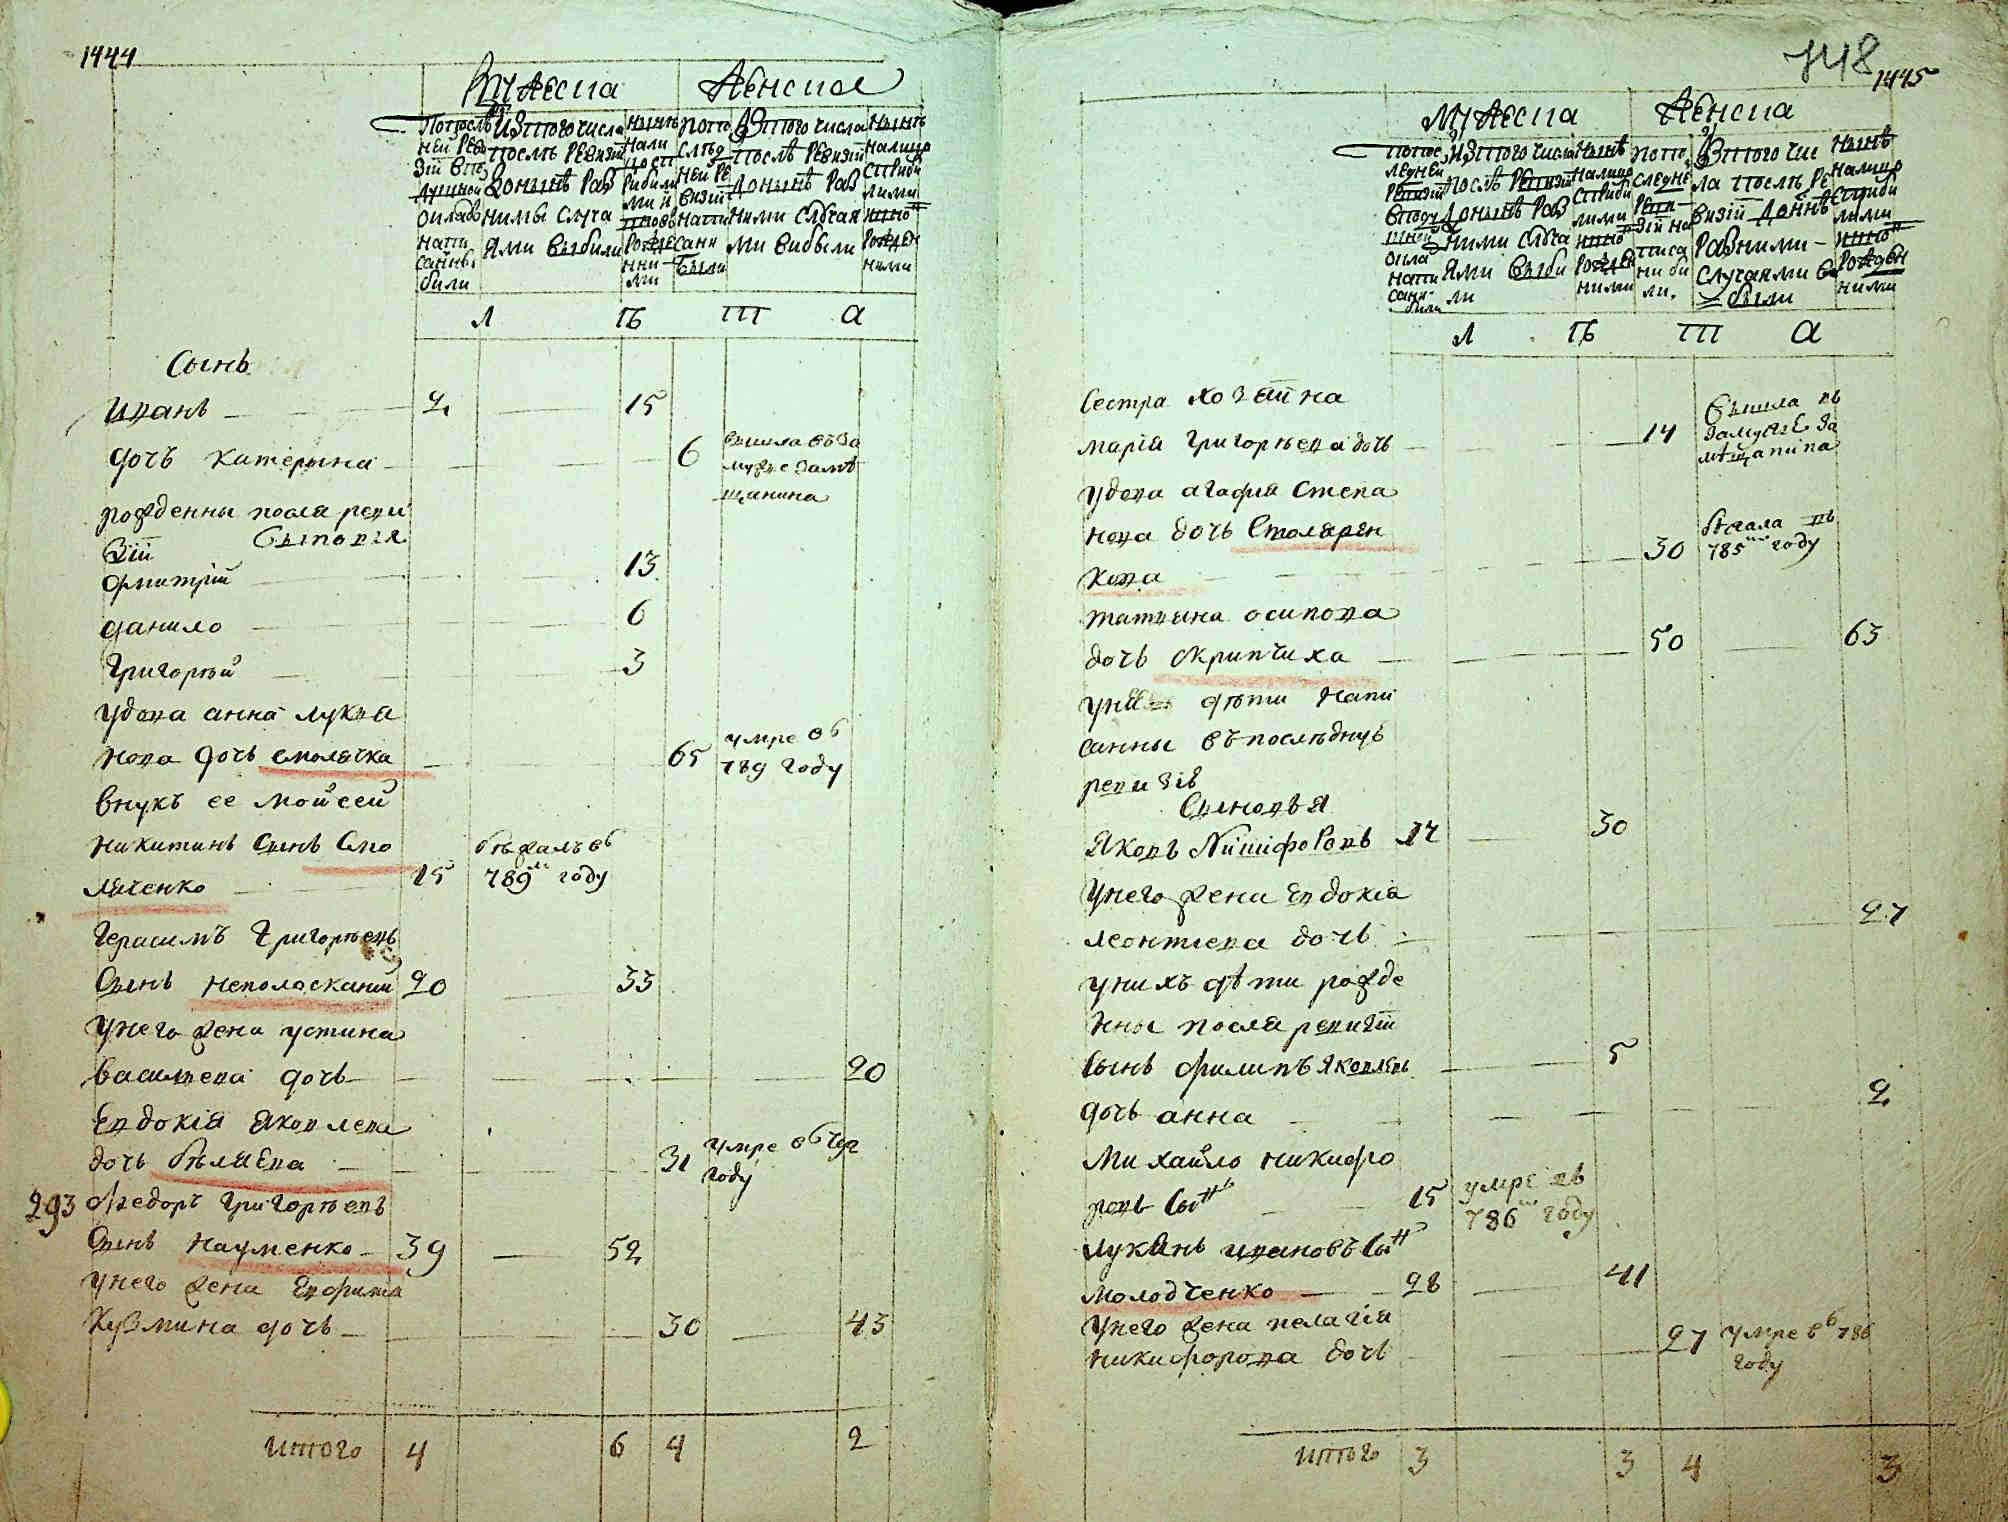 1444
Мужеска Женска
По последней ревизии в подушной оклад написаны были
Из того числа после ревизии доныне разными случаями выбыли
Ныне на лицо с прибилими и вновь рожденними
По последней ревизии написани были
Из того числа после ревизии доныне разними случаями вибыли
Ныне на лицо с прибилими и вновь рожденними
Л ѣ т а
Сынъ
Иванъ 2 15
дочь катерина 6 вишла в за
мужье за мѣ
щанина
рожденны после реви
зіи Сыновія
дмитрій 13
данило 6
Григорій 3
удова анна лукıa
нова дочь смолячка 65 умре въ
789 году
внукъ ее мойсей
никитинъ Сынъ Смо
ляченко 15 бѣжалъ въ
789м году
Герасимъ Григорьевъ
Сынъ неполоскани 20 33
унего жена устина
василіева дочь 20
Евдокія яковлева
дочь бѣляева 31 умре въ
году
293 Федоръ Григорьевъ
Сынъ Науменко 39 52
унего жена Евфимія
Кузмина дочь 30 43
итого 4 6 4 2
748
1445
Мужеска Женска
По последней ревизии в подушной оклад написани были
Из того числа после ревизии доныне разними случаями выбили
Ныне на лицо с прибилими и вновь рожденними
По последней ревизіи написани били.
Из того числа после ревизіи доныне разними случаями выбыли
Ныне на лицо с прибилими и вновь рожденними
Л ѣ т а
Сестра хозяйна
марія Григорьева дочь 14 Вышла въ
замужье за
мѣщанина
удова агафія Степа
нова дочь Столярен
кова 30 бежала въ
785м году
татияна осипова
дочь скрипчиха 50 63
унея дѣти напи
санны въпослѣднуѣ
ревизіѣ
Сыновья
Яковъ Никифоровъ 17 30
унего жена Евдокія
леонтиева дочь 27
унихъ дѣти рожде
нны после ревизіи
Сынъ филипъ яковлевъ 5
дочь анна 2
Михайло никифо
ровъ Сынъ 15 умре въ
786м году
лукянъ ивановъ Сынъ
молодченко 28 41
унего жена пелагія
никифорова дочь 27 умре въ 786
году
итого 3 3 4 3